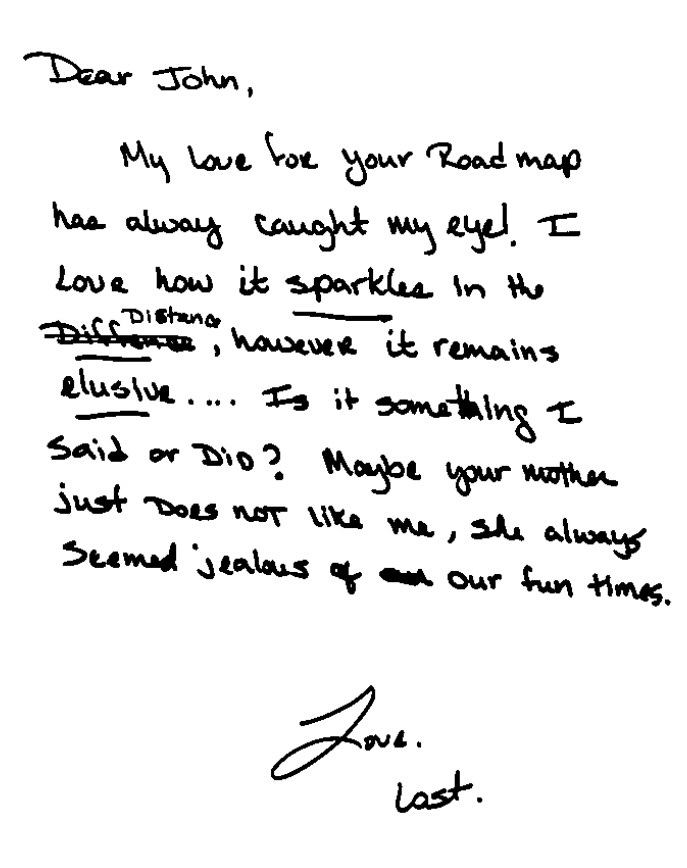 Dear John,
My love for your Road map
has alway caught my eye!. I
Love how it sparkles in the
Distance
, however it remains
elusive.... Is it something I
Said or DiD? Maybe your mother
just Does not like me, she always
Seemed jealous of our fun times.
Love.
Lost.